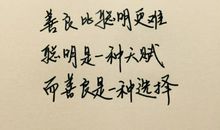 善良比聪明更难
聪明是一种天赋
而善良是一种选择